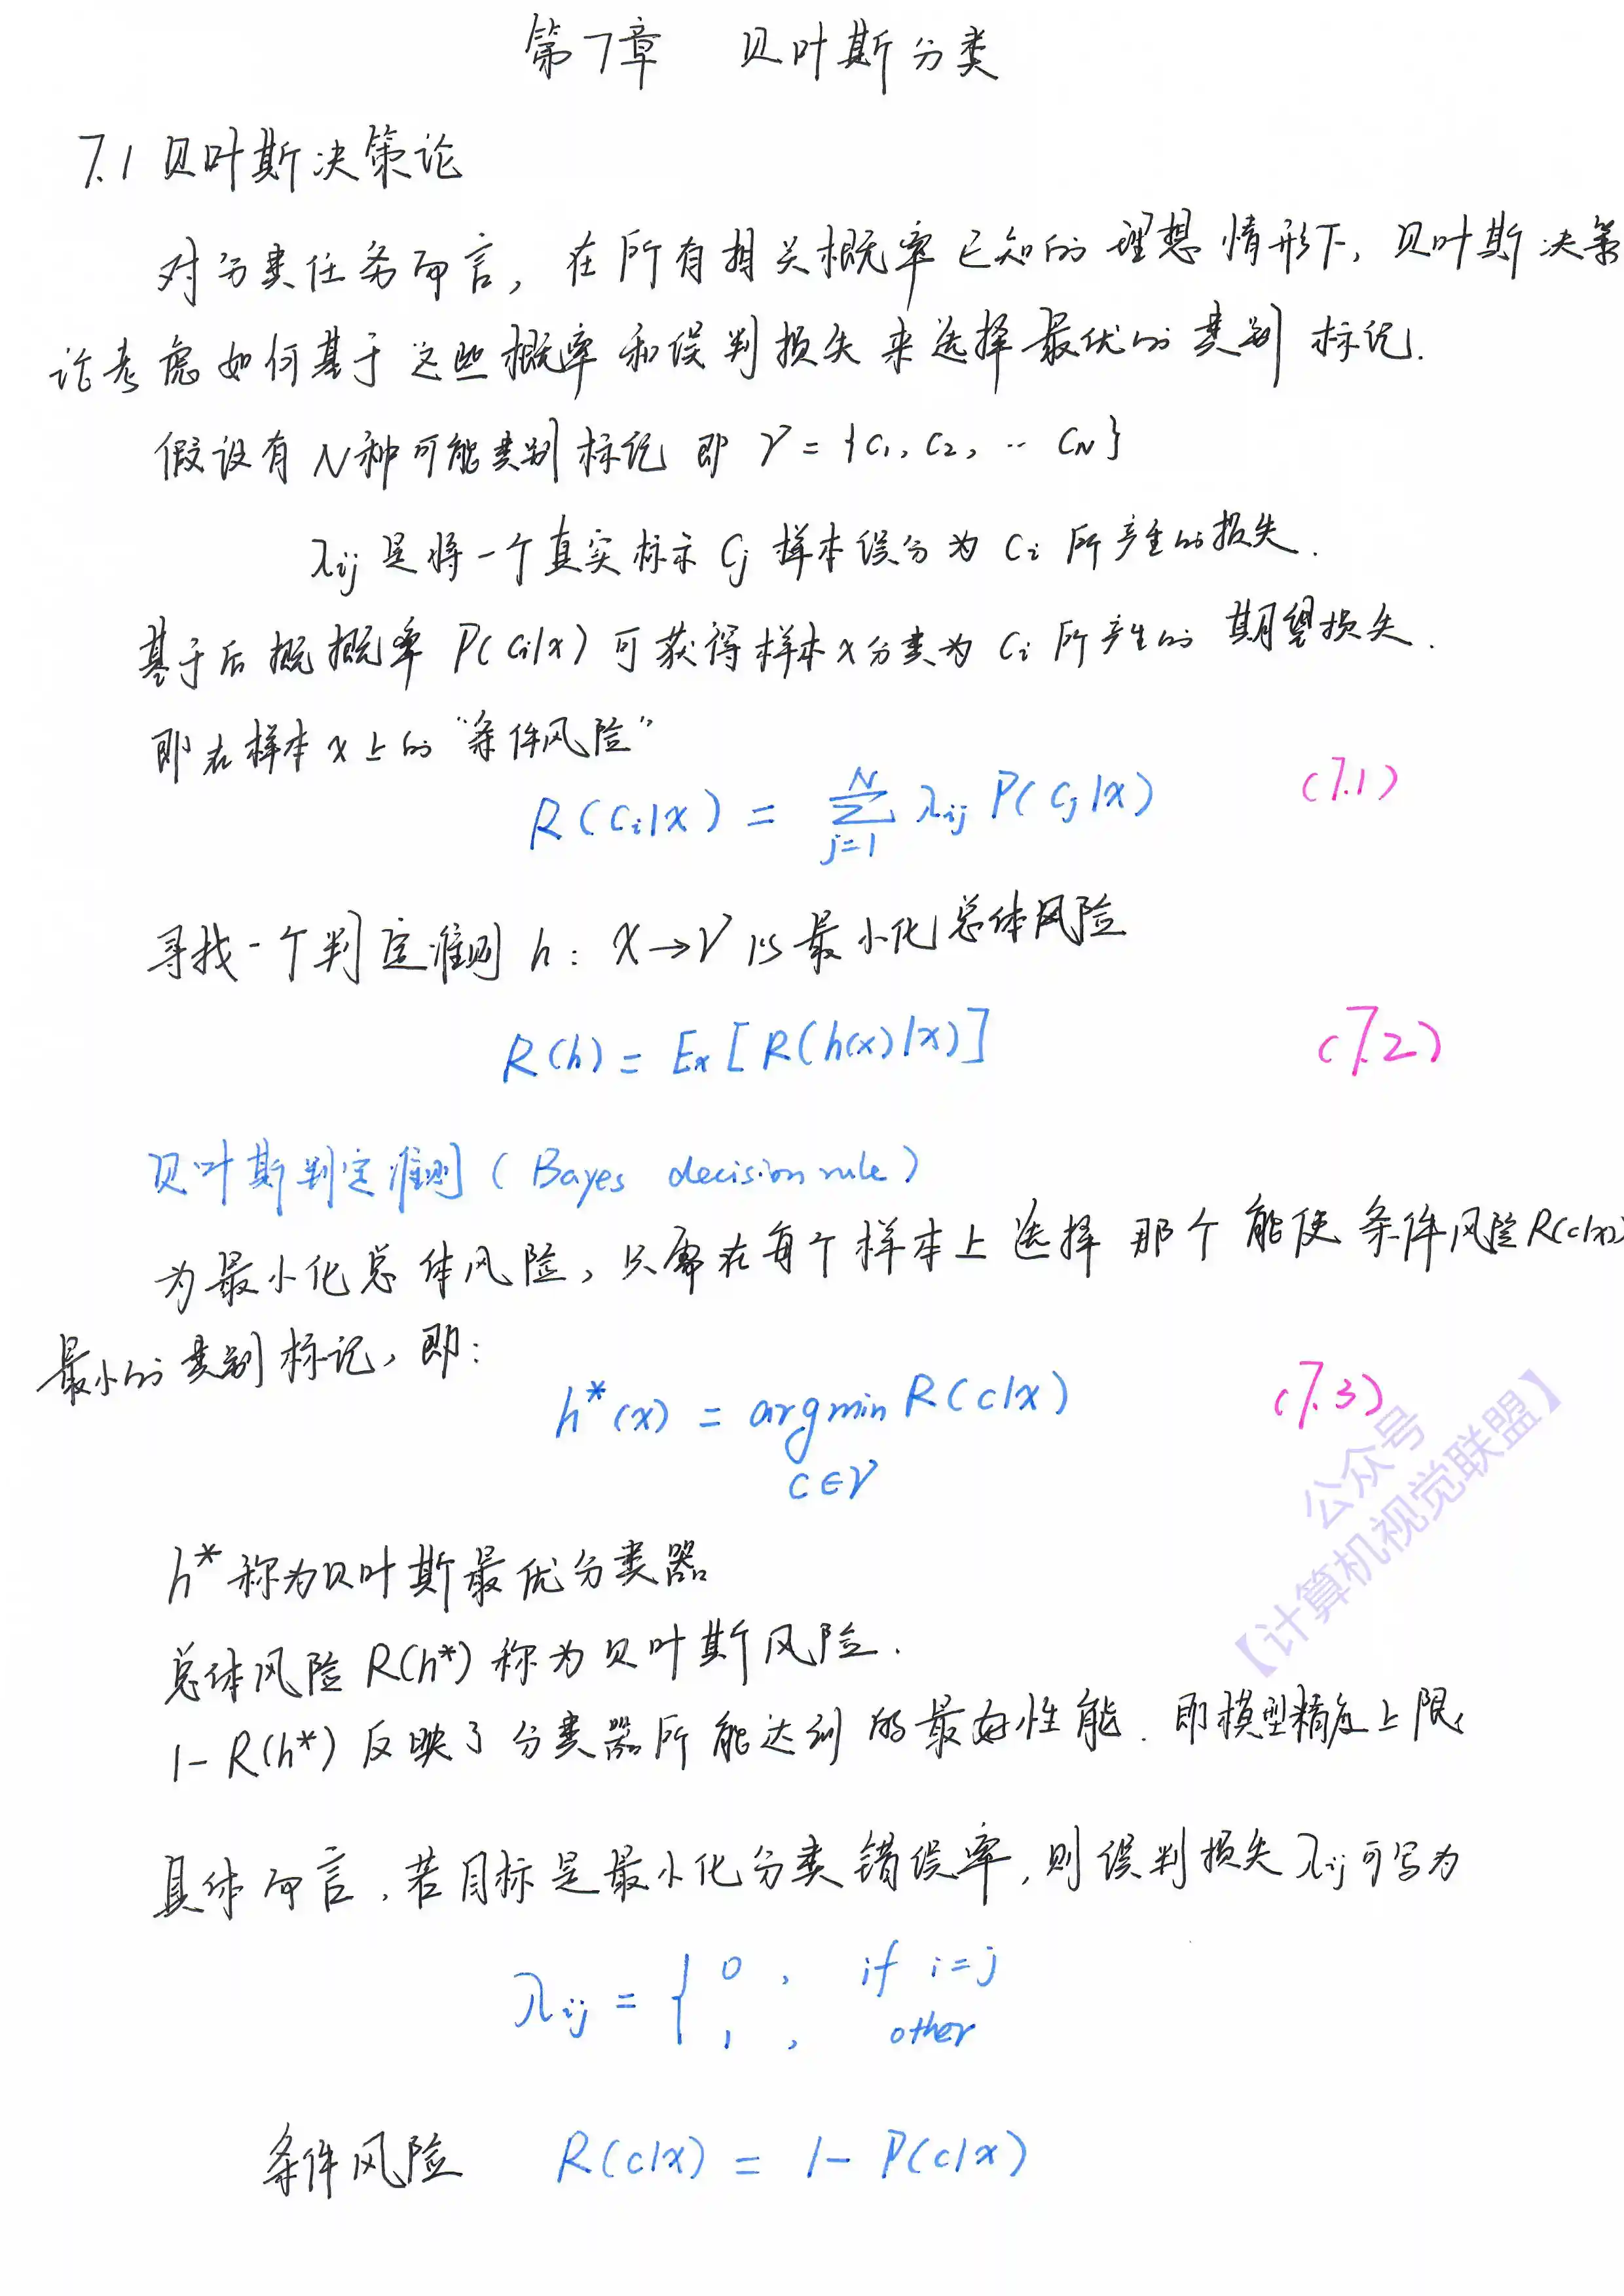 第7章 贝叶斯分类
7.1 贝叶斯决策论
对分类任务而言，在所有相关概率已知的理想情形下，贝叶斯决策
论考虑如何基于这些概率和误判损失来选择最优的类别标记.
假设有N种可能类别标记 即 Y = {c1, c2, ... cN}
λij 是将一个真实标示 cj 样本误分为 ci 所产生的损失.
基于后概概率 P(ci|x) 可获得样本x分类为 ci 所产生的期望损失.
即在样本x上的"条件风险"
R(ci|x) = ∑_{j=1}^{N} λij P(cj|x) (7.1)
寻找一个判定准则 h: X→Y 以最小化总体风险
R(h) = Ex[R(h(x)|x)] (7.2)
贝叶斯判定准则 (Bayes decision rule)
为最小化总体风险, 只需在每个样本上选择那个能使条件风险R(c|x)
最小的类别标记, 即:
h*(x) = argmin R(c|x) (7.3)
c∈Y
h* 称为贝叶斯最优分类器
总体风险 R(h*) 称为贝叶斯风险.
1-R(h*) 反映了分类器所能达到的最好性能. 即模型精度上限
具体而言, 若目标是最小化分类错误率, 则误判损失 λij 可写为
λij = { 0 , if i=j
1 , other
条件风险 R(c|x) = 1- P(c|x)
公众号
【计算机视觉联盟】